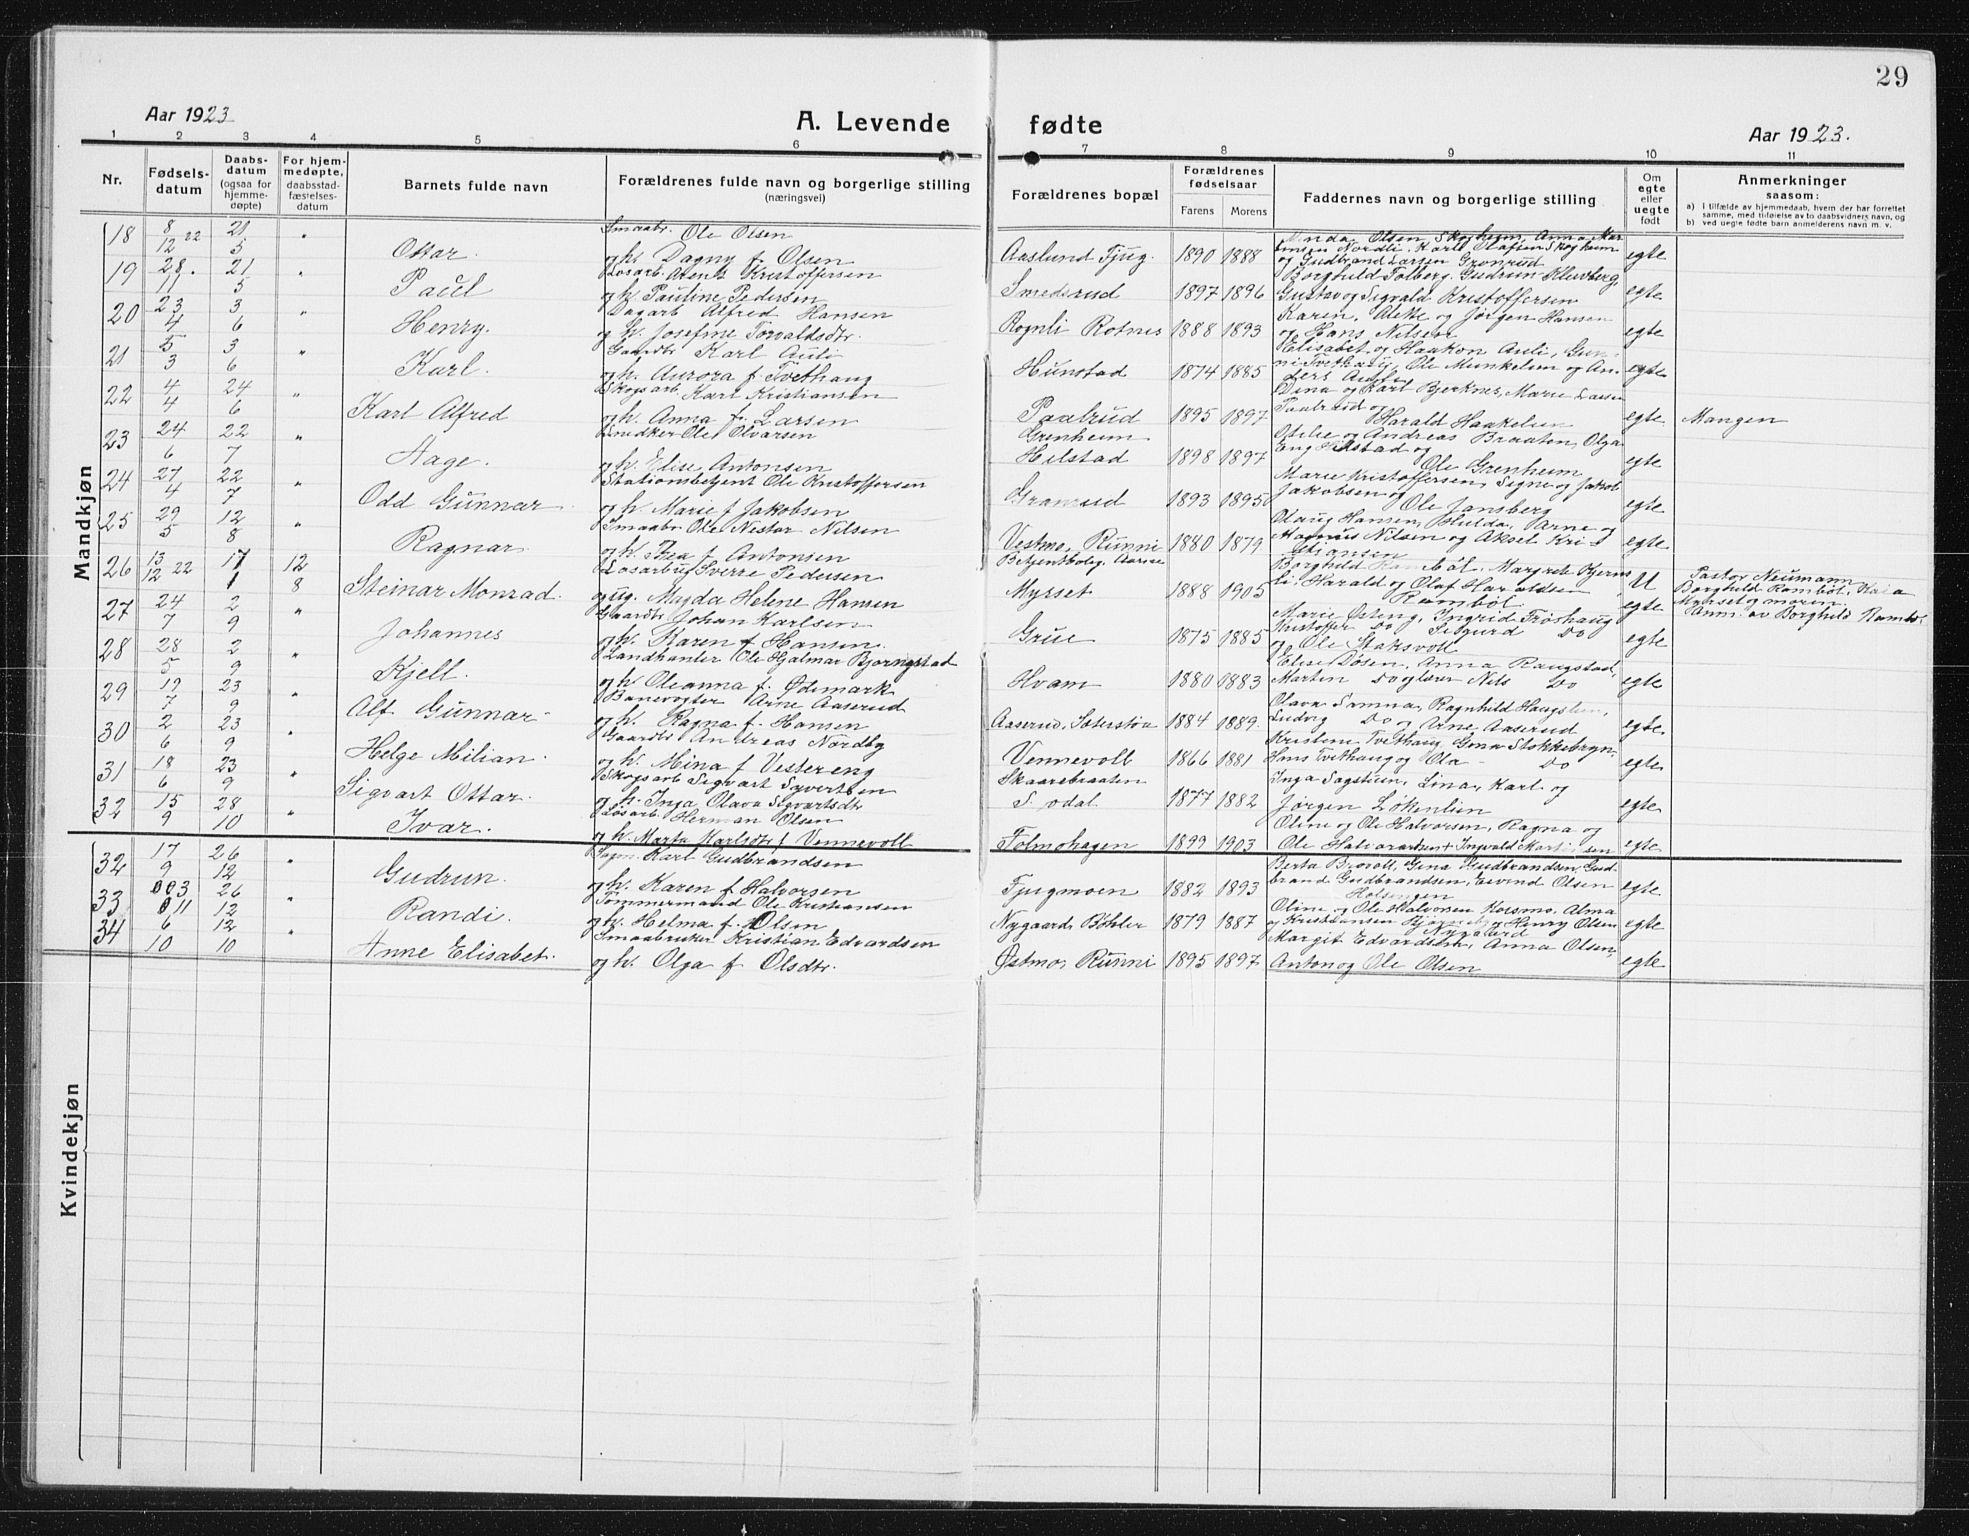 29
Aar 1923
A. Levende fødte
Aar 1923.
1 2 3 4 5 6 7 8 9 10 11
Nr.
Fødsels-
datum
Daabs-
datum
(ogsaa for
hjemme-
døpte)
For hjem-
medøpte,
daabsstad-
fæstelses-
datum
Barnets fulde navn
Forældrenes fulde navn og borgerlige stilling
(næringsvei)
Forældrenes bopæl
Forældrenes
fødselsaar
Farens Morens
Faddernes navn og borgerlige stilling
Om
egte
eller
uegte
født
Anmerkninger
saasom:
a) I tilfælde av hjemmedaab, hvem der har forrettet
samme, med tilføielse av to daabsvidners navn, og
b) ved uegte fødte barn anmelderens navn m. v.
Mandkjøn
18 8/12 22 21/5 " Ottar.
Smaabr. Ole Olsen
og h. Dagny f. Olsen
Aaslund Fjug. 1890 1888
Olsen Skogheim, Anna Mar-
tinsen Nordli, Karl Olafsen Skogheim
og Gudbrand Larsen Grønrud
egte
19 28/11 21/5 " Paul
Løsarb. Kristoffersen
og h. Pauline Pedersen
Smedsrud 1897 1896
Borghild Tolberg, Gudrun Kleivberg,
Gustav og Sigvald Kristoffersen
egte
20 23/4 3/6 " Henry.
Dagarb Alfred Hansen
og h. Josefine Torvaldsdtr.
Rognli Rotnes 1888 1893
Karen, Alette og Jørgen Hansen
og Hans Nilsen
egte
21 5/3 3/6 " Karl.
Gaardbr Karl Auli
og h. Aurora f Tvethaug
Hunstad 1874 1885
Elisabet og Haakon Auli, Gun-
ni Tvethaug, Ole Munkelien og An-
ders Auli
egte
22 4/4 24/6 " Karl Alfred
Skogsarb. Karl Kristiansen
og h. Anna f. Larsen
Paalrud 1895 1897
Dina og Karl Bjerknes, Marie Larsen
Paalrud og
Harald Haakelien
egte Mangen
23 24/6 22/7 " Aage.
Snidker Ole Olvarsen
og h. Elise Antonsen
Grenheim
Hilstad 1898 1897
Otelie og Andreas Braaten, Olga
Eng Hilstad og
Ole Grenheim
egte
24 27/4 22/7 " Odd Gunnar
Stationsbetjent Ole Kristoffersen
og h. Marie f Jakobsen
Granrud 1893 1895
Marie Kristoffersen, Signe og Jakob
Jakobsen og
Ole Jansberg
egte
25 29/5 12/8 " Ragnar
Smaabr Ole Nestor Nilsen
og h. Thea f Antonsen
Vestmo, Runni 1880 1879
Olaug Hansen, Hulda, Arne og
Magnus Nilsen og Aksel Kri-
stiansen
egte
26 13/12 22 17/1 12/8 Steinar Monrad.
Løsarb. Sverre Pedersen
og ug. Magda Helene Hansen
Betjentbolig. Aarnes
Myrset 1888 1905
Borghild Rambøl, Margrete Hjerns-
li, Harald og Olaf Haraldsen
Rambøl
U
Pastor Neumann
Borghild Rambøl, Kaia
Myrset og moren.
Anm. av Borghild Rambøl
27 24/7 2/9 " Johannes
Gaardbr Johan Karlsen
og h. Karen f Hansen
Grue 1875 1885
Marie Østeng, Ingrid Frøshaug
Kristoffer Do Sigurd Do
og Ole Staksvoll
egte
egte
28 28/5 2/9 " Kjell.
Landhanler Ole Hjalmar Bjørngstad
og h. Oleanna f. Ødemark
Hvam 1880 1883
Elise Døsen, Anna Raugstad,
Marten Do glærer Nils Do
egte
29 19/7 23/9 " Alf Gunnar
Banevogter Arne Aaserud
og h. Ragna f. Hansen
Aaserud, Sæterstøa 1884 1889.
Olava Samna, Ragnhild Haugsten,
Ludvig Do og Arne Aaserud
egte.
30 2/6 23/9 " Helge Milian
Gaardbr Andreas Nordby
og h. Mina f Vestereng
Vennevoll 1866 1881
Kristene Tvethaug, Gina Stokkebryn,
Hans Tvethaug og Ola - Do
egte
31 18/6 23/9 " Sigvart Ottar.
Skogsarb Sigvart Syversen
og h. Inga Olava Sigvartsdtr
Skaarebraaten
S. Odal 1877 1882
Inga Sagstuen, Lina, Karl og
Jørgen Løkenlien
egte
32 15/9 28/10 " Ivar.
Løsarb. Herman Olsen
og h. Marta Karlsdtr f Vennevoll
Folmohagen 1899 1903
Oline og Ole Halvorsen, Ragna og
Ole Halvorsen + Ingvald Mart: sen
egte
Kvindekjøn
32 17/9 26/12 " Gudrun.
Sagm. Karl Gudbrandsen
og h. Karen f Halvorsen
Fjugmoen 1882 1893
Berta Brovoll, Gina Gudbrandsen, Gud-
brand Gudbrandsen, Eivind Olsen
Holsingen
egte
33 3/11 26/12 " Randi.
Tømmermand Ole Kristiansen
og h. Helma f. Olsen
Nygaard, Bøhler 1879 1887
Oline og Ole Halvorsen Korsmo, Alma
og Kristiansen og Henry Olsen
Nygaard
egte
34 6/10 12/10 " Anne Elisabet.
Smaabruker Kristian Edvardsen
og h. Olga f Olsdtr.
Østmo, Runni 1895 1897
Margit Edvardsen, Anna Olsen,
Anton og Ole Olsen
egte